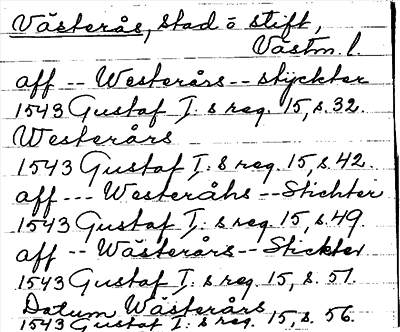 Västerås, stad o stift,
Västm. l.
aff -- Westerårs -- styckter
1543 Gustaf I:s reg. 15, s. 32.
Westerårs
1543 Gustaf I:s reg. 15, s. 42.
aff --- Westeråhs -- Stichter
1543 Gustaf I:s reg. 15, s. 49.
aff -- Wästerårs -- Stickter
1543 Gustaf I:s reg. 15, s. 51.
Datum Wästerårs
1543 Gustaf I:s reg. 15, s. 56.